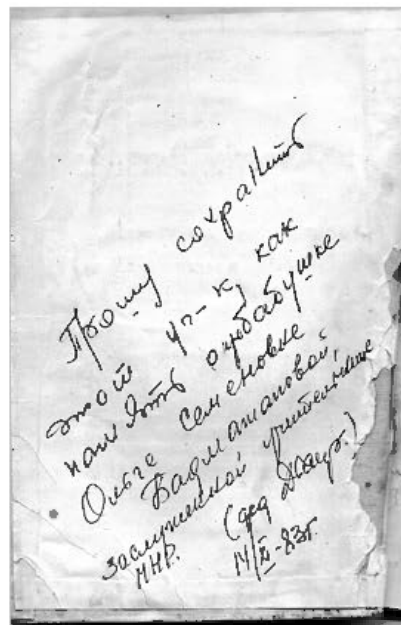 Прошу сохранить
этот уч-к, как
память о прабабушке
Ольге Семеновне
Бадматаповой,
заслуженной учительнице
МНР.
14/XI-83г.